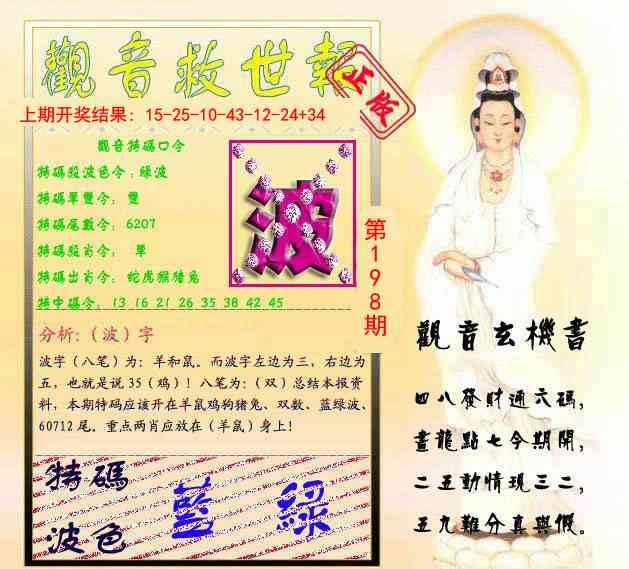 觀音救世報
正版
上期开奖结果：15-25-10-43-12-24+34
觀音特碼口令
特碼段波色令：綠波
特碼單雙令： 雙
特碼尾數令： 6207
特碼段肖令： 單
特碼出肖令： 蛇虎猴猪兔
特中碼令： 13 16 21 26 35 38 42 45
波
第198期
分析:（波）字
波字（八笔）为：羊和鼠。而波字左边为三，右边为
五，也就是说 35（鸡）！八笔为：（双）总结本报资
料，本期特码应该开在羊鼠鸡狗猪兔、双数、蓝绿波、
60712 尾。重点两肖应放在（羊鼠）身上！
特碼
波色
藍 綠
觀音玄機書
四八發財通六碼，
畫龍點七今期開，
二五動情現三二，
五九難分真與假。